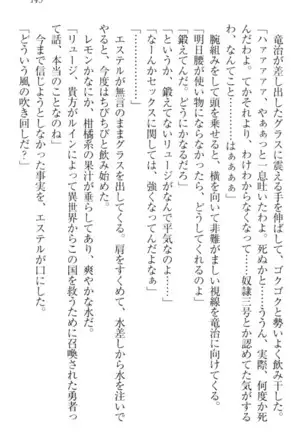 竜治が差し出したグラスに震える手を伸ばして、ゴクゴクと勢いよく飲み干した。
「ハァァァァァ、やぁぁっと一息吐いたわよ。死ぬかと……ううん、実際、何度か死
んだわよ。てかそれより、わけわからなくなって……奴隷三号とか認めてた気がする
わ、なんてこと……はぁぁぁぁ」
腕組みをして頭を乗せると、横を向いて非難がましい視線を竜治に向けてくる。
「明日腰が使い物にならなかったら、どうしてくれるのよ」
「鍛えてんだ。どうにかなるだろ」
「というか、鍛えてないリュージがなんで平気なのよ」
「なーんかセックスに関しては、強くなってんだよなぁ」
エステルが無言のままグラスを出してくる。肩をすくめて、水差しから水を注いで
やると、今度はちびちびと飲み始めた。
レモンかなにか、柑橘系の果汁が垂らしてあり、爽やかな水だ。
「リュージ、貴方がルインによって異世界からこの国を救うために召喚された勇者っ
て話、本当のことなのね」
今まで信じようとしなかった事実を、エステルが口にした。
「どういう風の吹き回しだ？」